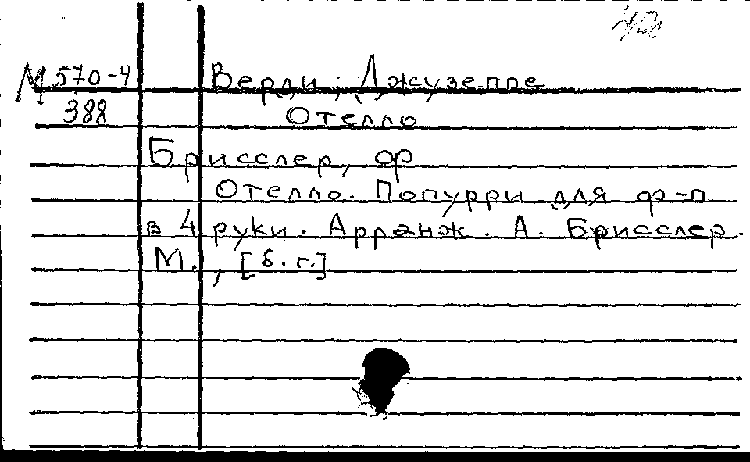 М 570-4 Верди, Джузеппе
388 Отелло
Брисслер, ф
Отелло. Попурри для ф-п
в 4 руки. Арранж. А. Брисслер.
М., [б. г.]